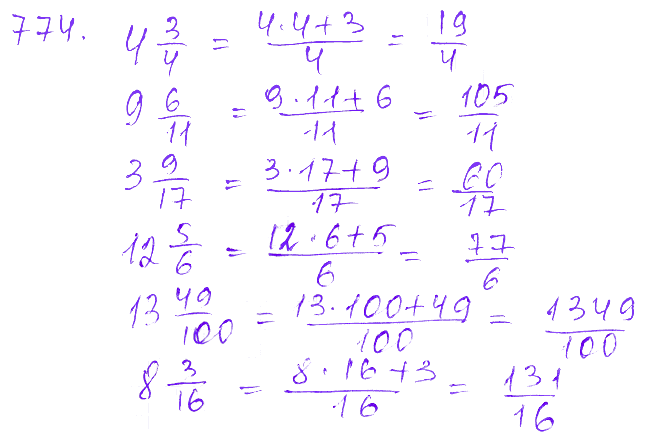 774. 4 3/4 = (4·4+3)/4 = 19/4
9 6/11 = (9·11+6)/11 = 105/11
3 9/17 = (3·17+9)/17 = 60/17
12 5/6 = (12·6+5)/6 = 77/6
13 49/100 = (13·100+49)/100 = 1349/100
8 3/16 = (8·16+3)/16 = 131/16